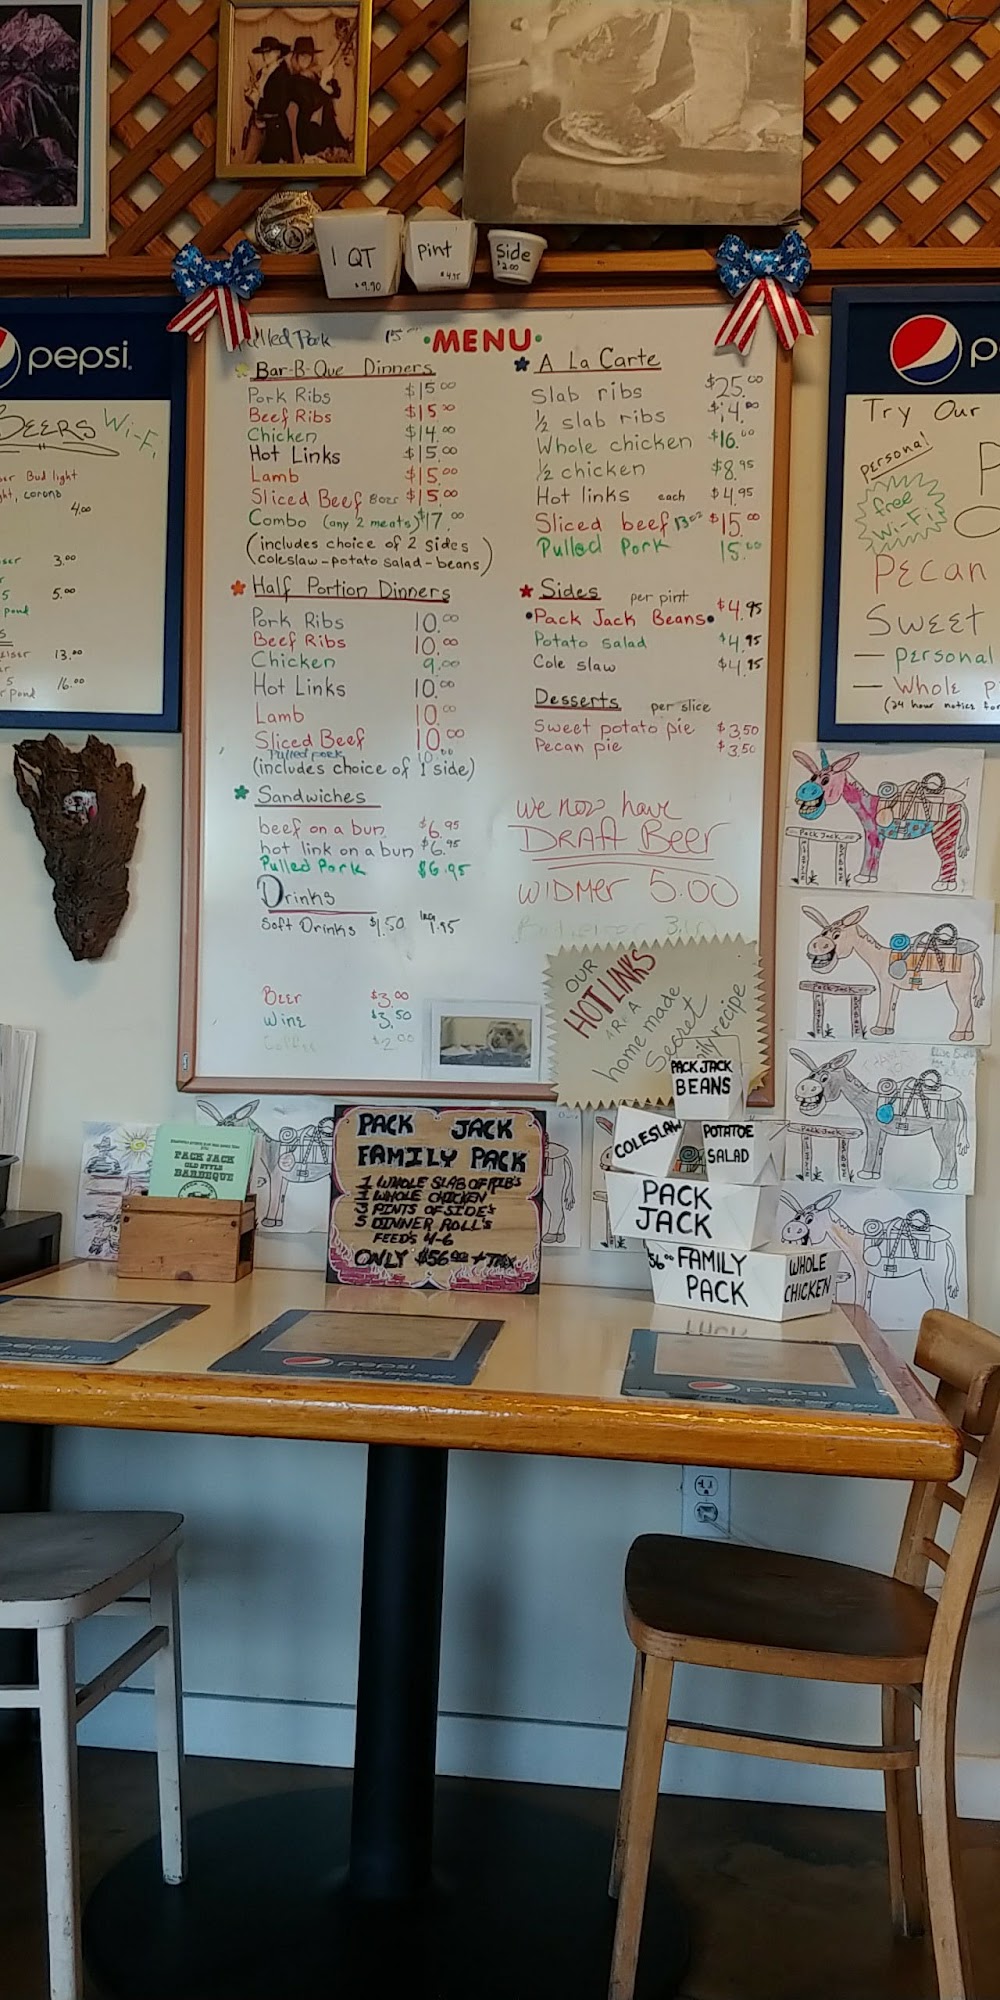 1 QT
$9.90
Pint
$4.95
Side
$2.00
pepsi
BEERS Wi-Fi
Bud light
corona
4.00
3.00
5.00
13.00
16.00
Pulled Pork 15
MENU
Bar-B-Que Dinners
Pork Ribs $15.00
Beef Ribs $15.00
Chicken $14.00
Hot Links $15.00
Lamb $15.00
Sliced Beef 8oz $15.00
Combo (any 2 meats) $17.00
(includes choice of 2 sides
coleslaw-potato salad-beans)
Half Portion Dinners
Pork Ribs 10.00
Beef Ribs 10.00
Chicken 9.00
Hot Links 10.00
Lamb 10.00
Sliced Beef 10.00
Pulled pork 10.00
(includes choice of 1 side)
Sandwiches
beef on a bun $6.95
hot link on a bun $6.95
Pulled Pork $6.95
Drinks
Soft Drinks $1.50 lrg 1.95
Beer $3.00
Wine $3.50
Coffee $2.00
A La Carte
Slab ribs $25.00
1/2 slab ribs $14.00
Whole chicken $16.00
1/2 chicken $8.95
Hot links each $4.95
Sliced beef 13oz $15.00
Pulled Pork 15.00
Sides per pint
Pack Jack Beans $4.95
Potato salad $4.95
Cole slaw $4.95
Desserts per slice
Sweet potato pie $3.50
Pecan pie $3.50
We now have
DRAFT BEER
WIDMER 5.00
Budweiser
OUR
HOT LINKS
ARE A
home made
Secret
family recipe
Try Our
personal
free
Wi-Fi
PECAN
SWEET
— personal
— Whole
(24 hour notice for
Pack Jack
Pack Jack
Pack Jack
PACK JACK
OLD STYLE
BARBEQUE
PACK JACK
FAMILY PACK
1 WHOLE SLAB OF RIB'S
1 WHOLE CHICKEN
3 PINTS OF SIDE'S
5 DINNER ROLL'S
FEED'S 4-6
ONLY $56.00 + TAX
PACK JACK
BEANS
COLESLAW
POTATOE
SALAD
PACK
JACK
56.00 FAMILY
PACK
WHOLE
CHICKEN
pepsi
pepsi
pepsi